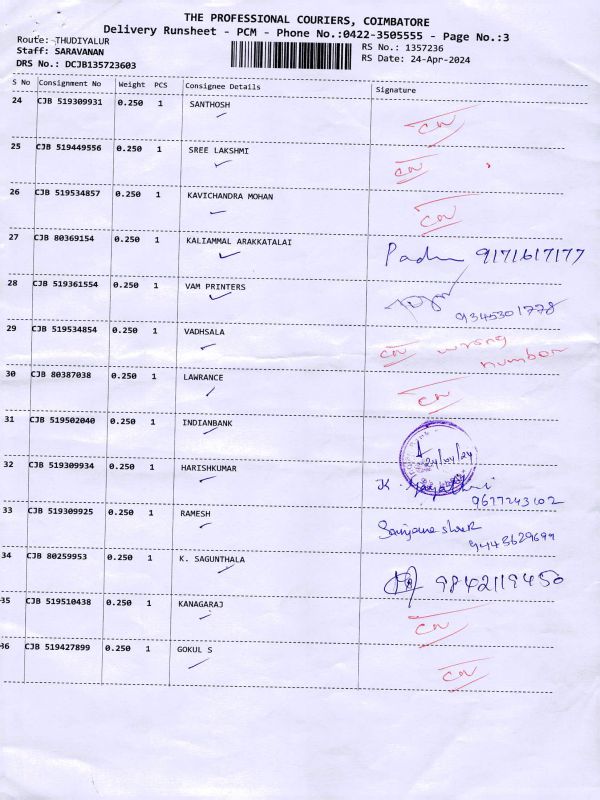 THE PROFESSIONAL COURIERS, COIMBATORE
Delivery Runsheet - PCM - Phone No.:0422-3505555 - Page No.:3
Route: THUDIYALUR
RS No.: 1357236
Staff: SARAVANAN
RS Date: 24-Apr-2024
DRS No.: DCJB135723603
S No Consignment No Weight PCS Consignee Details Signature
24 CJB 519309931 0.250 1 SANTHOSH
25 CJB 519449556 0.250 1 SREE LAKSHMI
26 CJB 519534857 0.250 1 KAVICHANDRA MOHAN
27 CJB 80369154 0.250 1 KALIAMMAL ARAKKATALAI 9171617177
28 CJB 519361554 0.250 1 VAM PRINTERS
9345301778
29 CJB 519534854 0.250 1 VADHSALA wrong
number
30 CJB 80387038 0.250 1 LAWRANCE
31 CJB 519502040 0.250 1 INDIANBANK
24/04/24
32 CJB 519309934 0.250 1 HARISHKUMAR
33 CJB 519309925 0.250 1 RAMESH
34 CJB 80259953 0.250 1 K. SAGUNTHALA 9842119450
35 CJB 519510438 0.250 1 KANAGARAJ
36 CJB 519427899 0.250 1 GOKUL S